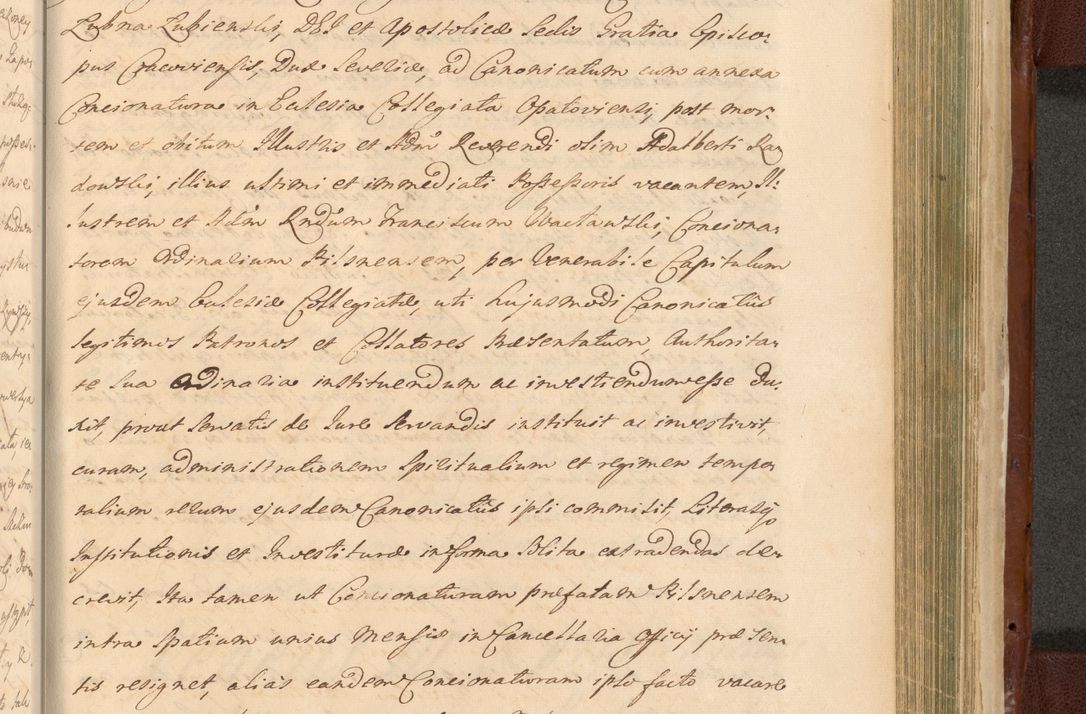 Lubna Lubienski, DEI et Apostolicæ Sedis Gratia Episco-
pus Cracoviensis, Dux Severiæ, ad Canonicatum cum annexa
Concionatura in Eclesia Collegiata Opatoviensi, post mor-
tem et obitum Illustris et Adm Reverendi olim Adalberti Ra
dowski, illius ultimi et immediati Possessoris vacantem, Il-
lustrem et Adm Rndum Franciscum Wacławski, Conciona-
torem Ordinarium Pilsnensem, per Venerabile Capitulum
ejusdem Eclesiæ Collegiatæ, uti hujusmodi Canonicatus
legitimos Patronos et Collatores Præsentatum, Authorita-
te sua Ordinaria instituendum ac investiendum esse du-
xit, prout servatis de Jure servandis instituit ac investivit,
curam, administrationem Spiritualium et regimen tempo-
ralium rerum ejusdem Canonicatus ipsi commisit, Literasq
Institutionis et Investituræ in forma solita extradendas de-
crevit, Ita tamen ut Concionaturam præfatam Pilsnensem
intra Spatium unius Mensis in Cancellaria Officij præsen
tis resignet, alias eandem Concionaturam ipso facto vacare